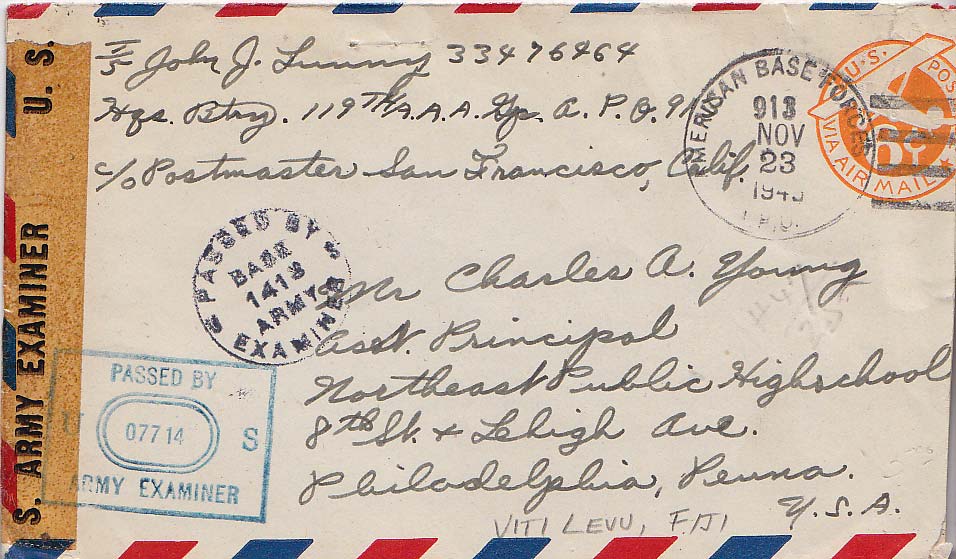 T/5 John J. Lunny 33476464
Hqs. Btry. 119th A.A.A. Gp. A. P. O. 91
c/o Postmaster San Francisco, Calif.
AMERICAN BASE FORCES
913
NOV
23
1943
A.P.O.
U.S. POS
VIA AIR MAIL
S. ARMY EXAMINER U. S.
PASSED BY
BASE
1413
ARMY
EXAMINER
U S
Mr Charles A. Young
Asst. Principal
Northeast Public Highschool
8th St. & Lehigh Ave.
Philadelphia, Penna.
U.S.A.
PASSED BY
U 07714 S
ARMY EXAMINER
VITI LEVU, FIJI